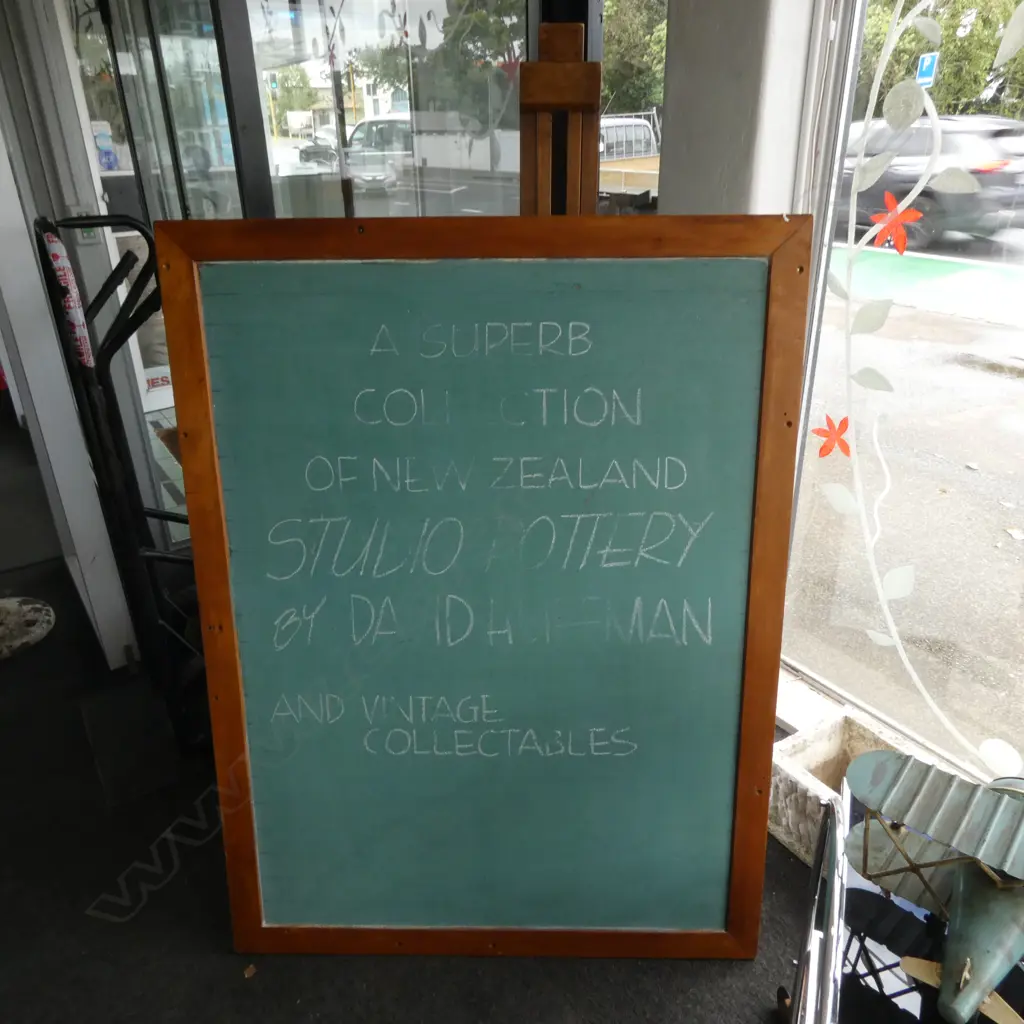 A SUPERB
COLLECTION
OF NEW ZEALAND
STUDIO POTTERY
BY DAVID HUFFMAN
AND VINTAGE
COLLECTABLES
P
www